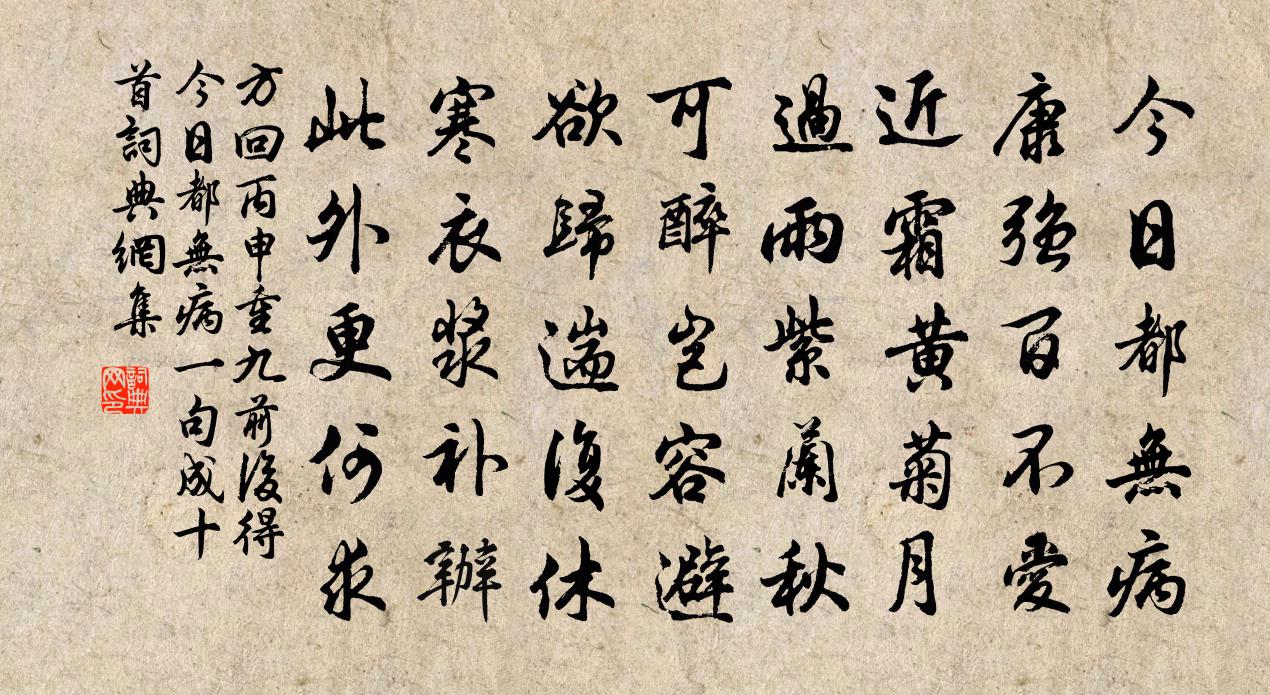 今日都無病
康強百不憂
近霜黃菊月
過雨紫蘭秋
可醉豈容避
欲歸遄復休
寒衣漿補辦
此外更何求
方回丙申重九前後得
今日都無病一句成十
首詞典網集
詞典
网印